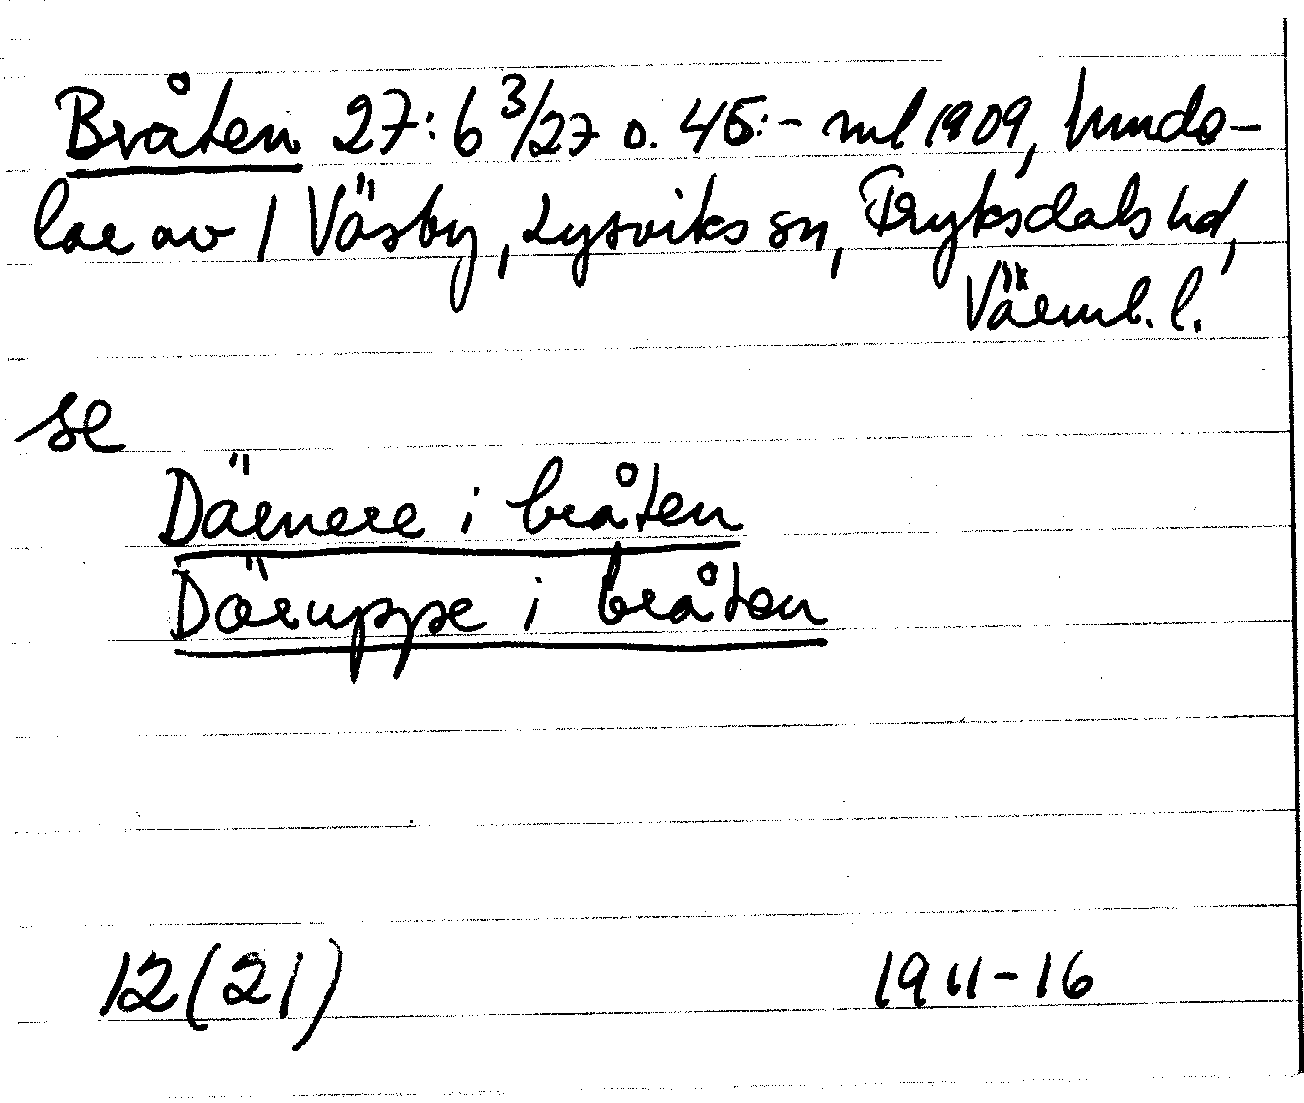 Bråten 27:6 3/27 o. 45:- ml 1909, hmds-
lar av 1 Väsby, Lysviks sn, Fryksdals hd,
Värml. l.
se
Därnere i bråten
Däruppe i bråten
12(21) 1911-16